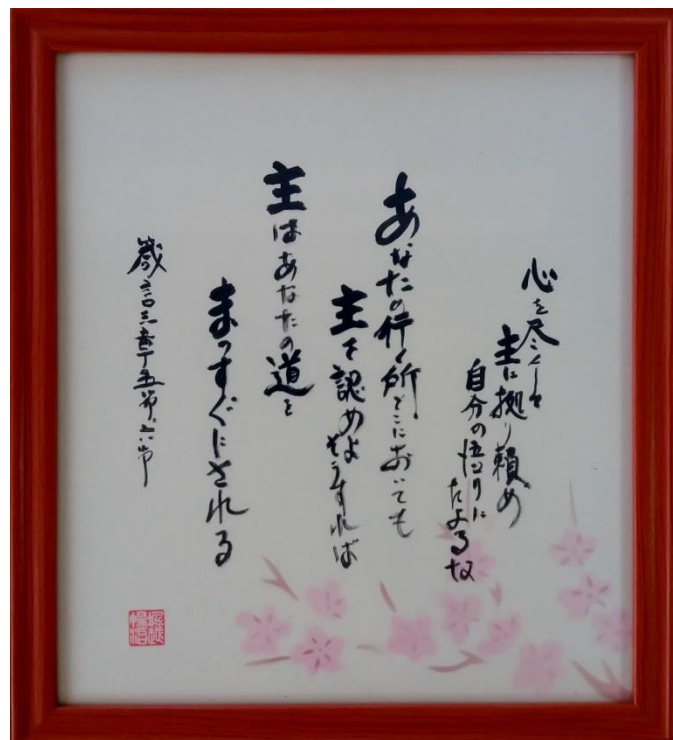 心を尽くして
主に拠り頼め
自分の悟りに
たよるな
あなたの行く所どこにおいても
主を認めよ
そうすれば
主はあなたの道を
まっすぐにされる
箴言三章五節六節